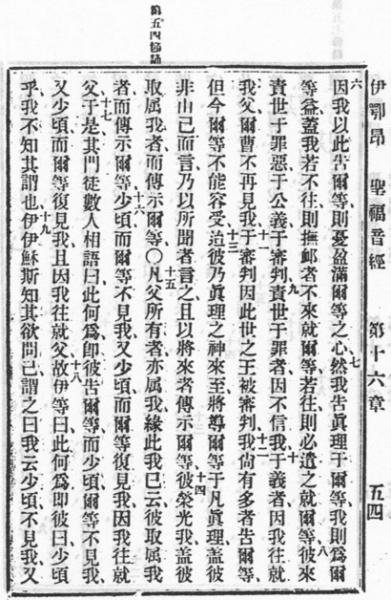 伊鄂昻 聖福音經 第十六章 五四
六因我以此告爾等則憂盈滿爾等之心、七然我告眞理于爾等、我則爲爾
等益、蓋我若不往、則撫䘏者不來就爾等、若往、則必遣之就爾等、八彼來
責世于罪惡于公義于審判、九責世于罪者、因不信我、十于義者、因我往就
我父、爾曹不再見我、十一于審判、因此世之王被審判、十二我尙有多者告爾等、
但今爾等不能容受、十三迨彼乃眞理之神來至、將導爾等于凡眞理、盖彼
非由己而言、乃以所聞者言之、且以將來者傳示爾等、十四彼榮光我、盖彼
取屬我者而傳示爾等〇十五凡父所有者、亦屬我、緣此我已云、彼取屬我
者而傳示爾等、十六少頃而爾等不見我、又少頃而爾等復見我、因我往就
父、十七于是其門徒數人相語曰、此何爲、即彼告爾等、而少頃爾等不見我、
又少頃而爾等復見我、且因我往就父、十八故伊等曰、此何爲、即彼曰少頃
乎、我不知其謂也、十九伊伊穌斯知其欲問己、謂之曰、我云少頃不見我、又
第五四節誦